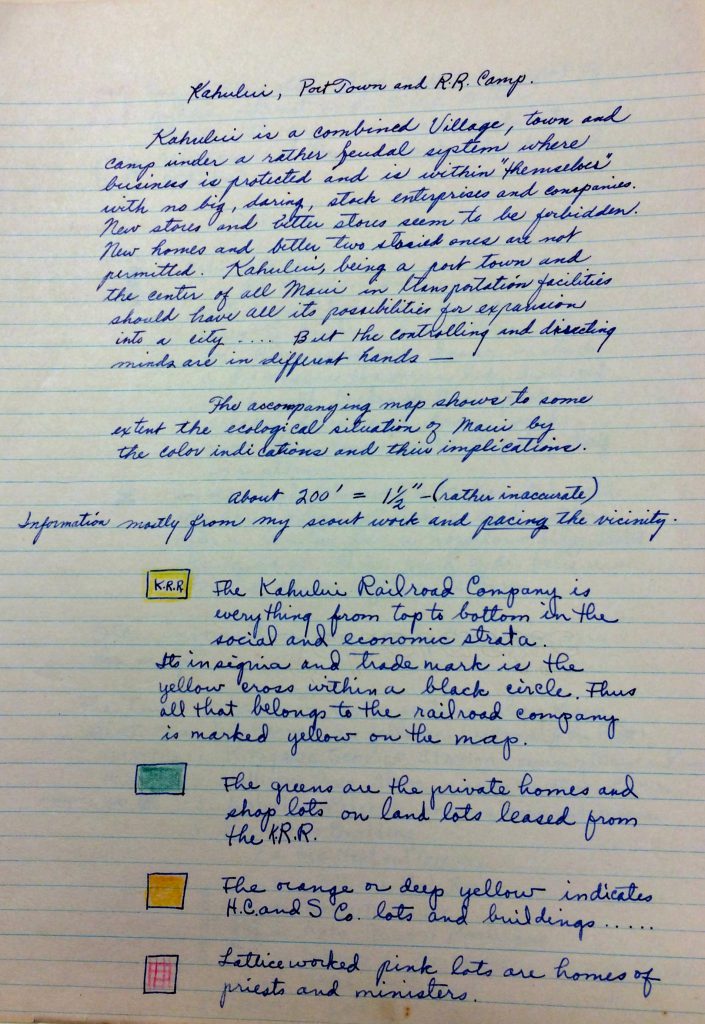 Kahului, Port Town and R.R. Camp.
Kahului is a combined Village, town and
camp under a rather feudal system where
business is protected and is within "themselves"
with no big, daring, stock enterprises and companies.
New stores and better stores seem to be forbidden.
New homes and better two storied ones are not
permitted. Kahului, being a port town and
the center of all Maui in transportation facilities
should have all its possibilities for expansion
into a city .... But the controlling and directing
minds are in different hands —
The accompanying map shows to some
extent the ecological situation of Maui by
the color indications and their implications.
About 200' = 1½" - (rather inaccurate)
Information mostly from my scout work and pacing the vicinity.
K.R.R. The Kahului Railroad Company is
everything from top to bottom in the
social and economic strata.
Its insignia and trade mark is the
yellow cross within a black circle. Thus
all that belongs to the railroad company
is marked yellow on the map.
The greens are the private homes and
shop lots on land lots leased from
the K.R.R.
The orange or deep yellow indicates
H.C. and S Co. lots and buildings......
Lattice worked pink lots are homes of
priests and ministers.